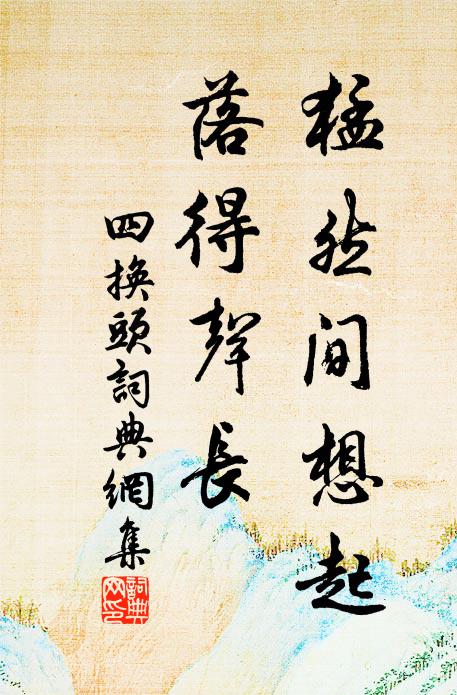 猛然间想起
落得聲長
四换頭詞典網集
詞典
网印